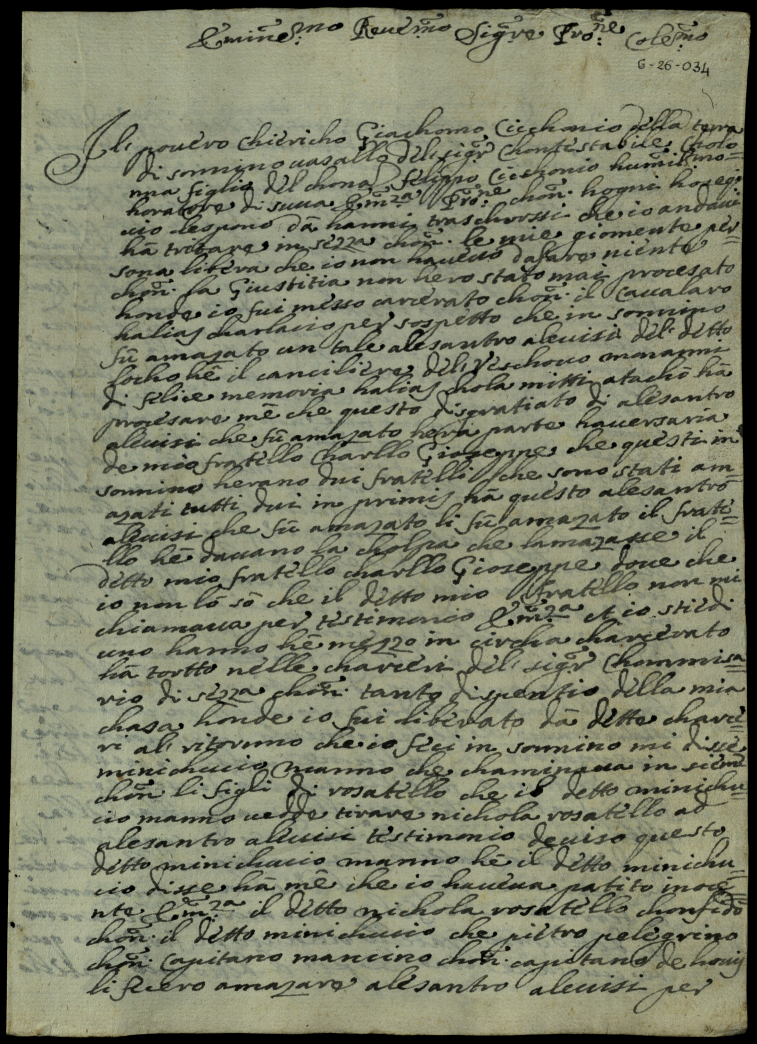 Emin:mo Reue:mo Sig:re Pro:ne Cole:mo
G-26-034
Il pouero Chiericho Giachomo Cicchonio della terra
di sonnino uasallo del sig:r Chontestabile Cholo=
nna figlio del chonal felippo Cicchonio humiliss:mo
horatore di suua Em:za Pro:ne chon: hogni
uio l espono da hanni traschorssi che io andaui
ha tritare in sezza chon: le mie giomente per=
sona libera che io non haueuo da fare niente
chon: la Giustitia non hero stato mai procesato
honde io fui messo carcerato chon: il Caualaro
halias charlacio per sospetto che in sonnino
fu amazato un tale alesantro aleuisi del ditto
locho he il canciliere del Veschouo maranni
di felice memoria halias chola mitti atacho ha
procesare me che questo disgratiato di alesantro
aleuisi che fu amazato hera parte hauersaria
de mio fratello Charllo Gioseppe che questi in
sonnino herano dui fratelli che sono stati am
azati tutti dui in primis ha questo alesantro
aleuisi che fu amazato li fu amazato il frate=
llo he dauano la cholpa che lamazasse il
ditto mio fratello charllo Gioseppe doue che
io non lo so che il ditto mio fratello non mi
chiamaua per testimonio Em:za et io stiedi
uno hanno he mezzo in circha charcerato
ha tortto nelle charceri del sig:r Chommisa
rio di sezza chon: tanto dispentio della mia
chasa honde io fui liberato da ditte charce=
ri al ritornno che io feci in sonnino mi disse
minichucio manno che chaminaua in sieme
chon li figli di rosatello che il detto minichu=
cio manno uedde tirare nichola rosatello ad
alesantro aleuisi testimonio deuiso questo
ditto minichucio manno he il ditto minichu=
cio disse ha me che io haueua patito inoce
nte Em:za il ditto nichola rosatello chonfido
chon: il ditto minichucio che pietro pelegrino
chon: Capitano mancino chon: capitano de houis
li fecero amazare alesantro aleuisi per